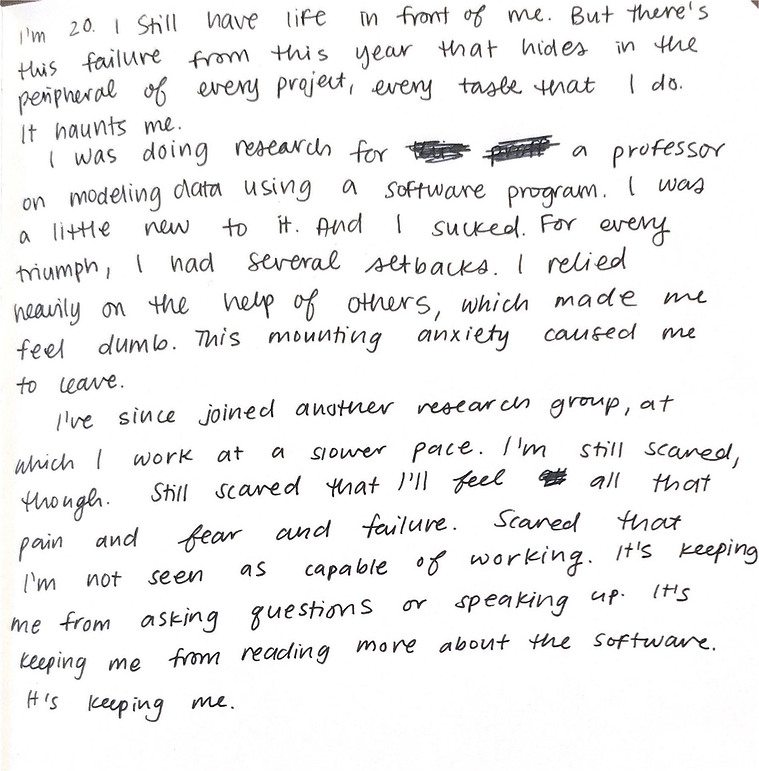 I'm 20. I still have life in front of me. But there's
this failure from this year that hides in the
peripheral of every project, every taste that I do.
It haunts me.
I was doing research for a professor
on modeling data using a software program. I was
a little new to it. And I sucked. For every
triumph, I had several setbacks. I relied
heavily on the help of others, which made me
feel dumb. This mounting anxiety caused me
to leave.
I've since joined another research group, at
which I work at a slower pace. I'm still scared,
though. Still scared that I'll feel all that
pain and fear and failure. Scared that
I'm not seen as capable of working. It's keeping
me from asking questions or speaking up. It's
keeping me from reading more about the software.
It's keeping me.